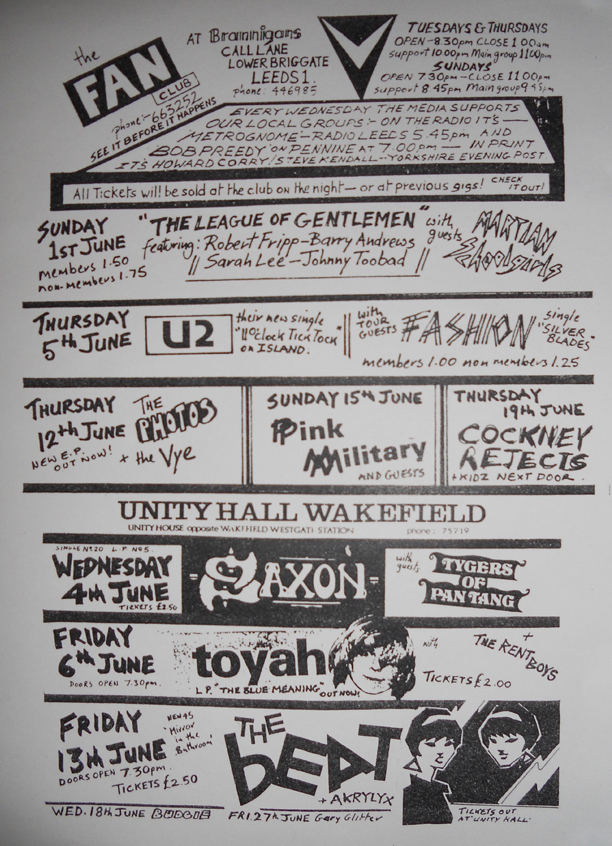 the
FAN
CLUB
phone:-663252
SEE IT BEFORE IT HAPPENS
AT Brannigans
CALL LANE
LOWER BRIGGATE
LEEDS 1.
phone: 446985
TUESDAYS & THURSDAYS
OPEN-8.30pm CLOSE 1 00am
support 10.00pm Main group 11.00pm
SUNDAYS
OPEN 7 30pm-CLOSE 11 00pm
support 8 45pm Main group 9 45pm
EVERY WEDNESDAY THE MEDIA SUPPORTS
OUR LOCAL GROUPS:- ON THE RADIO IT'S-
METROGNOME-RADIO LEEDS 5.45pm AND
BOB PREEDY 'ON PENNINE AT 7.00pm - IN PRINT
IT'S HOWARD CORRY/STEVE KENDALL-YORKSHIRE EVENING POST
All Tickets will be sold at the club on the night- or at previous gigs! CHECK IT OUT!
SUNDAY
1ST JUNE
members 1.50
non-members 1.75
"THE LEAGUE OF GENTLEMEN"
featuring: Robert Fripp-Barry Andrews
Sarah Lee-Johnny Toobad
with guests
MARTIAN
Schoolgirls
THURSDAY
5TH JUNE
U2
their new single
"11 o'clock Tick Tock"
on ISLAND.
with TOUR GUESTS
FASHION
single
"SILVER BLADES"
members 1.00 non members 1.25
THURSDAY
12TH JUNE
NEW E.P. OUT NOW!
THE
PHOTOS
+ the Vye
SUNDAY 15TH JUNE
Pink
Military
AND GUESTS
THURSDAY
19TH JUNE
COCKNEY
REJECTS
+ KIDZ NEXT DOOR.
UNITY HALL WAKEFIELD
UNITY HOUSE opposite WAKEFIELD WESTGATE STATION phone: 75719
SINGLE Nº20 L.P Nº5
WEDNESDAY
4TH JUNE
TICKETS £2.50
SAXON
with guests
TYGERS
OF
PAN TANG
FRIDAY
6TH JUNE
DOORS OPEN 7.30pm.
toyah
L.P. "THE BLUE MEANING" OUT NOW!
with
+
THE RENT BOYS
TICKETS £2.00
FRIDAY
13TH JUNE
DOORS OPEN 7.30pm.
TICKETS £2.50
NEW 45
'Mirror in the Bathroom'
THE
bEAT
+ AKRYLYX
TICKETS OUT
AT 'UNITY HALL'
WED. 18TH JUNE BUDGIE
FRI. 27TH JUNE Gary Glitter